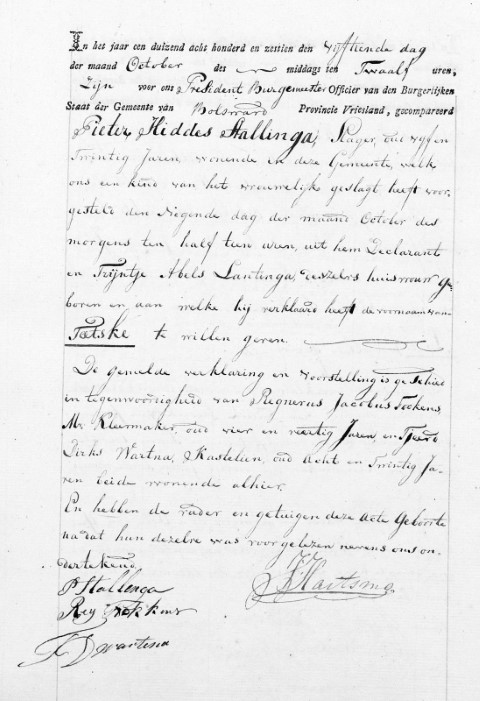 In het jaar een duizend acht honderd en zestien den vijftienda dag
der maand October des middags ten Twaalf uren,
Zijn voor ons President Burgemeester Officier van den Burgerlijken
Staat der Gemeente van Bolsward Provincie Vriesland, gecompareerd
Pieter Hiddes Stallinga, Slager, oud vijf en
Twintig Jaren wonende in deze Gemeente, welk
ons een kind van het vrouwelijke geslagt heeft voor
gesteld den Negende dag der maand October des
morgens ten half tien uren, uit hem Declarant
en Trijntje Abels Lantinga, deszelvs huisvrouw ge
boren en aan welke hij verklaard heeft de voornaam van
Tætske te willen geven.
De gemelde verklaring en voorstelling is geschied
in tegenwoordigheid van Regnerus Jacobus Fockens,
Mr. Kleermaker, oud vier en veertig Jaren, en Tjeerd
Dirks Wartna, Kastelein, oud Acht en Twintig Ja-
ren beide wonende alhier.
En hebben de vader en getuigen deze Acte Geboorte
na dat hun dezelve was voorgelezen nevens ons on-
dertekend
P Stallenga
Rey Fokkens
T D Wartena